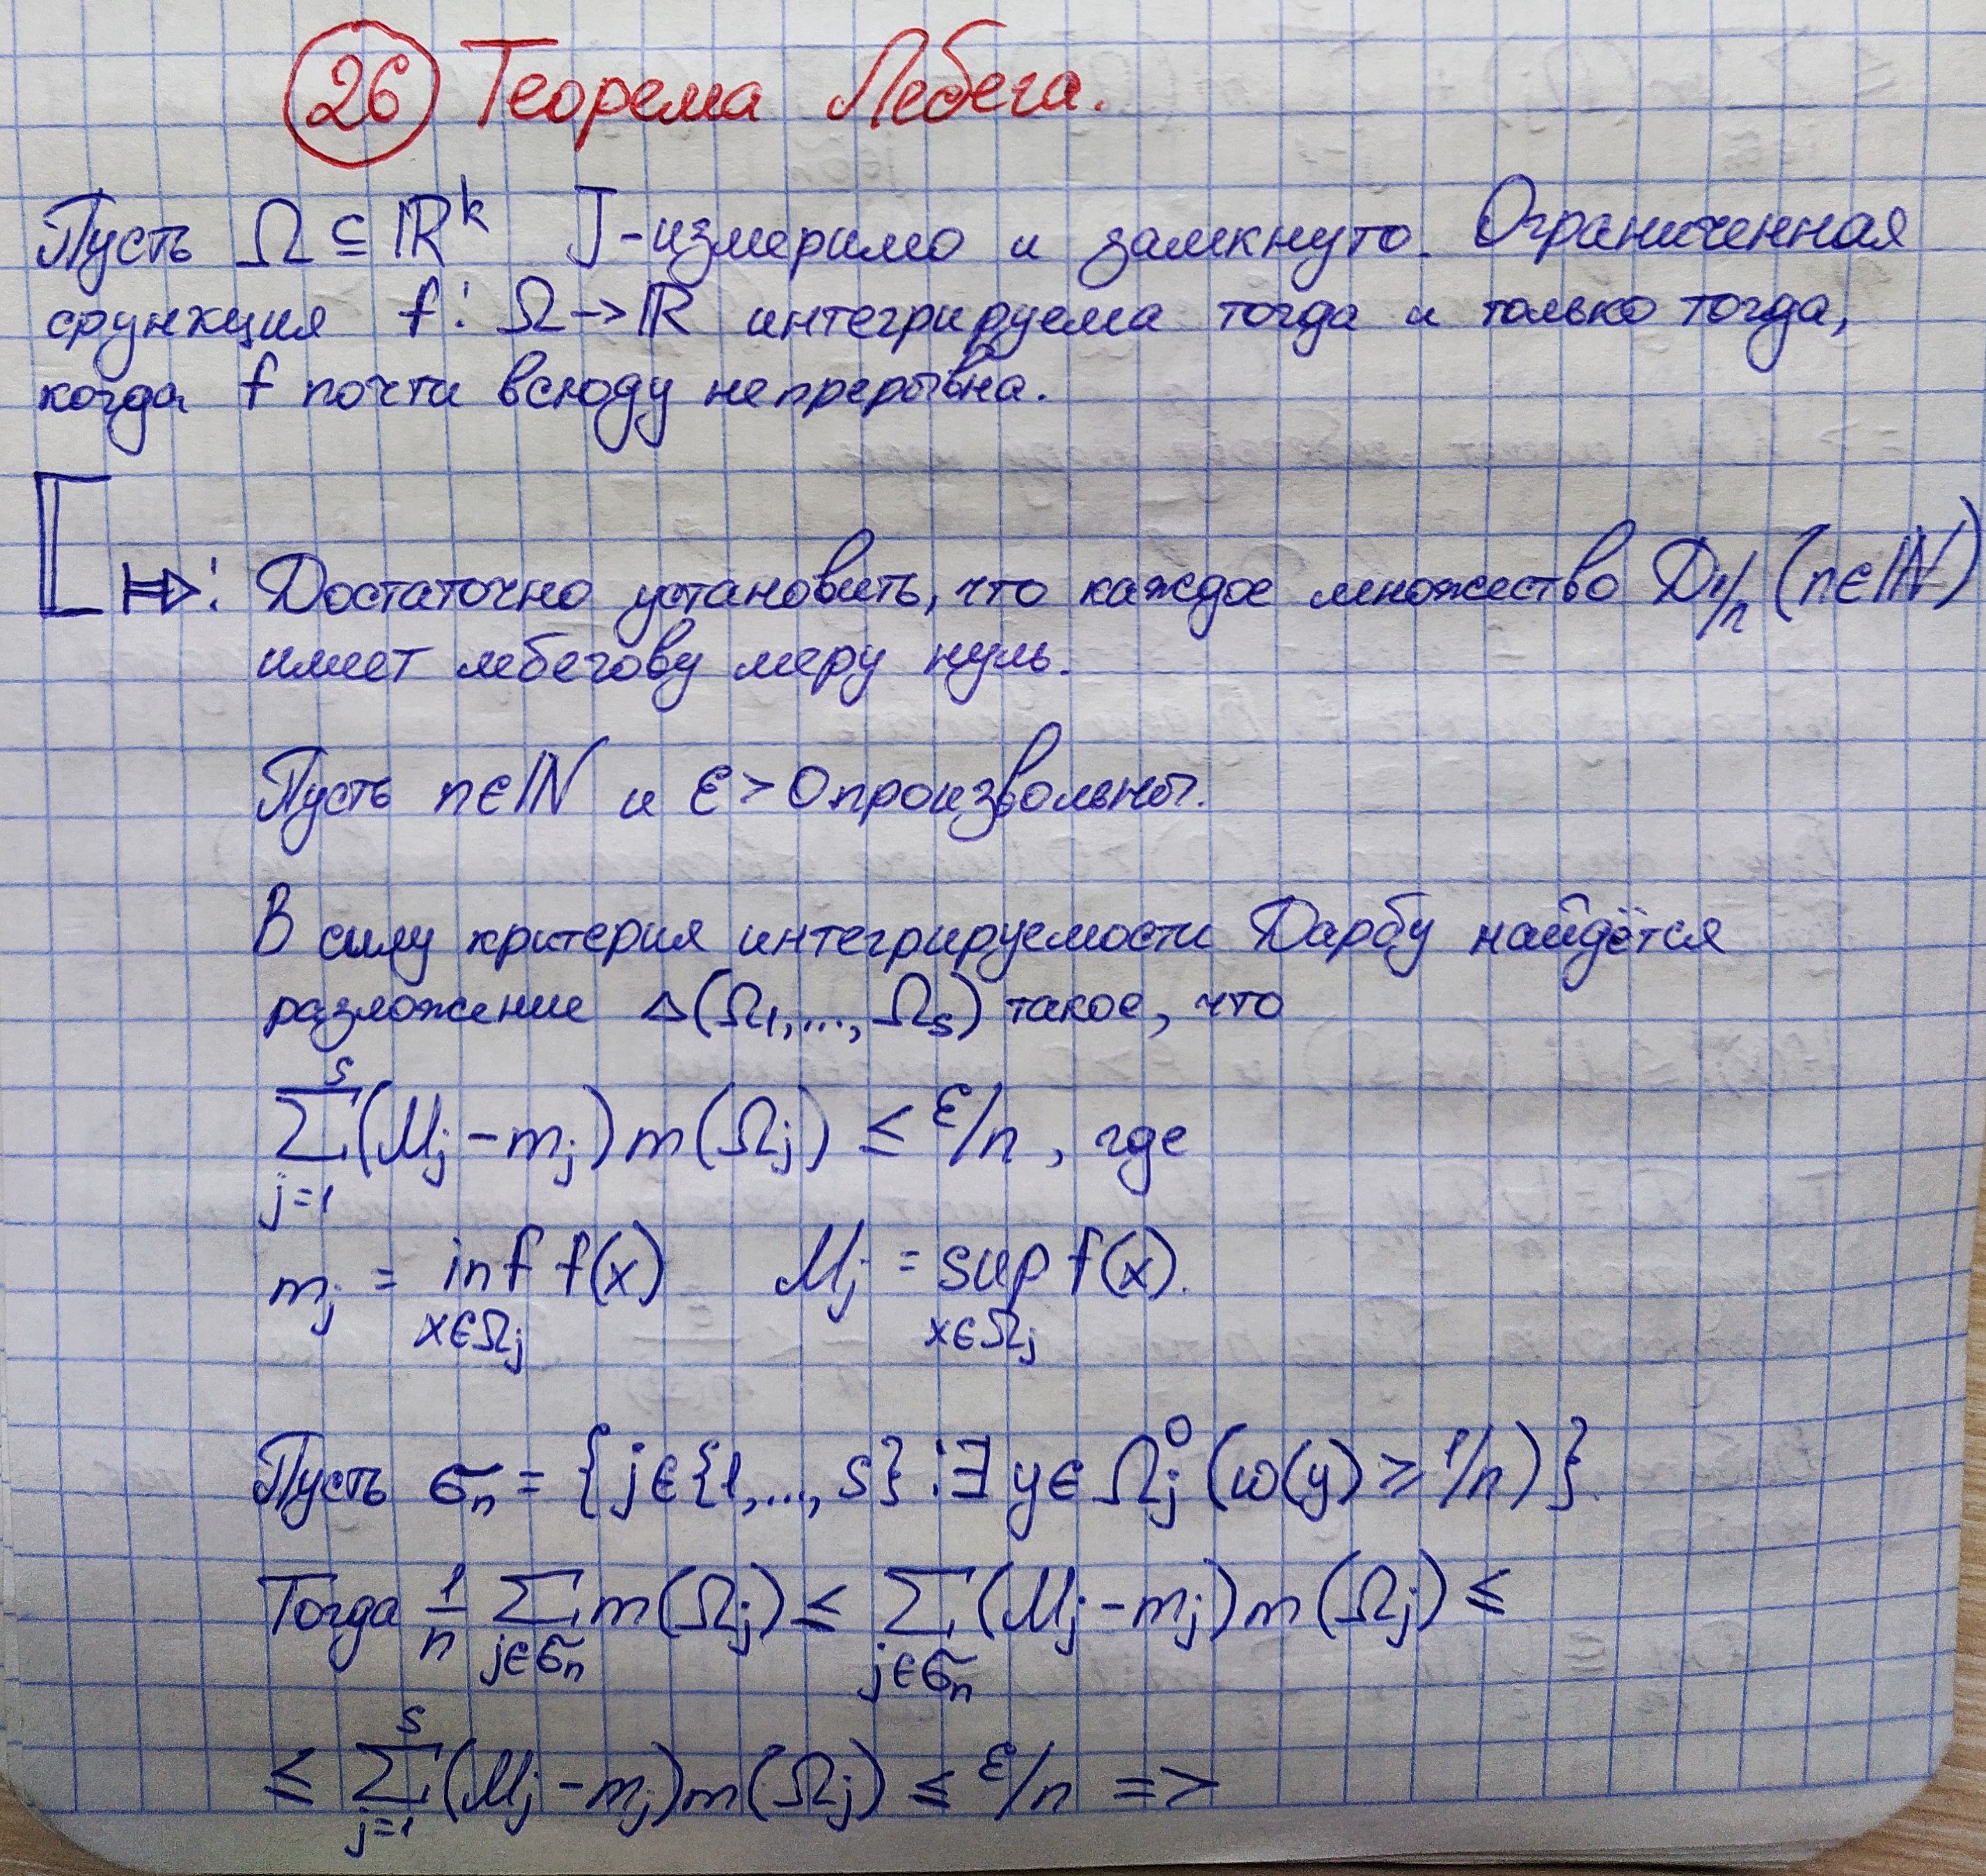 26 Теорема Лебега.
Пусть Ω ⊆ ℝᵏ J-измеримо и замкнуто. Ограниченная
функция f: Ω → ℝ интегрируема тогда и только тогда,
когда f почти всюду непрерывна.
⟹: Достаточно установить, что каждое множество D₁/ₙ (n∈ℕ)
имеет лебегову меру нуль.
Пусть n∈ℕ и ε > 0 произвольны.
В силу критерия интегрируемости Дарбу найдётся
разложение Δ(Ω₁,..., Ωₛ) такое, что
∑_{j=1}^{s} (Mⱼ - mⱼ) m(Ωⱼ) ≤ ε/n, где
mⱼ = inf_{x∈Ωⱼ} f(x) Mⱼ = sup_{x∈Ωⱼ} f(x).
Пусть σₙ = {j∈{1,..., s} : ∃ y∈Ωⱼ⁰ (ω(y) ≥ 1/n)}.
Тогда 1/n ∑_{j∈σₙ} m(Ωⱼ) ≤ ∑_{j∈σₙ} (Mⱼ - mⱼ) m(Ωⱼ) ≤
≤ ∑_{j=1}^{s} (Mⱼ - mⱼ) m(Ωⱼ) ≤ ε/n =>